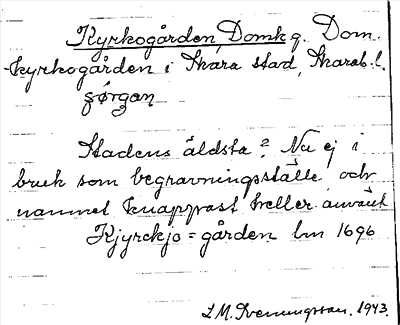 Kyrkogården, Domkg. Dom-
kyrkogården i Skara stad, Skarab. l.
çǿrgan
Stadens äldsta? Nu ej i
bruk som begravningsställe och
namnet knappast heller använt
Kjyrckjo = gården lm 1696
L M. Svenungsson. 1943.